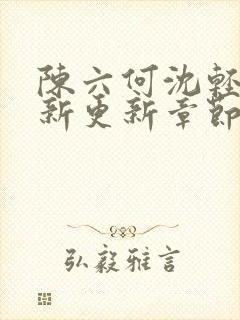 陳六何沈輕
新更新章節
弘毅雅言